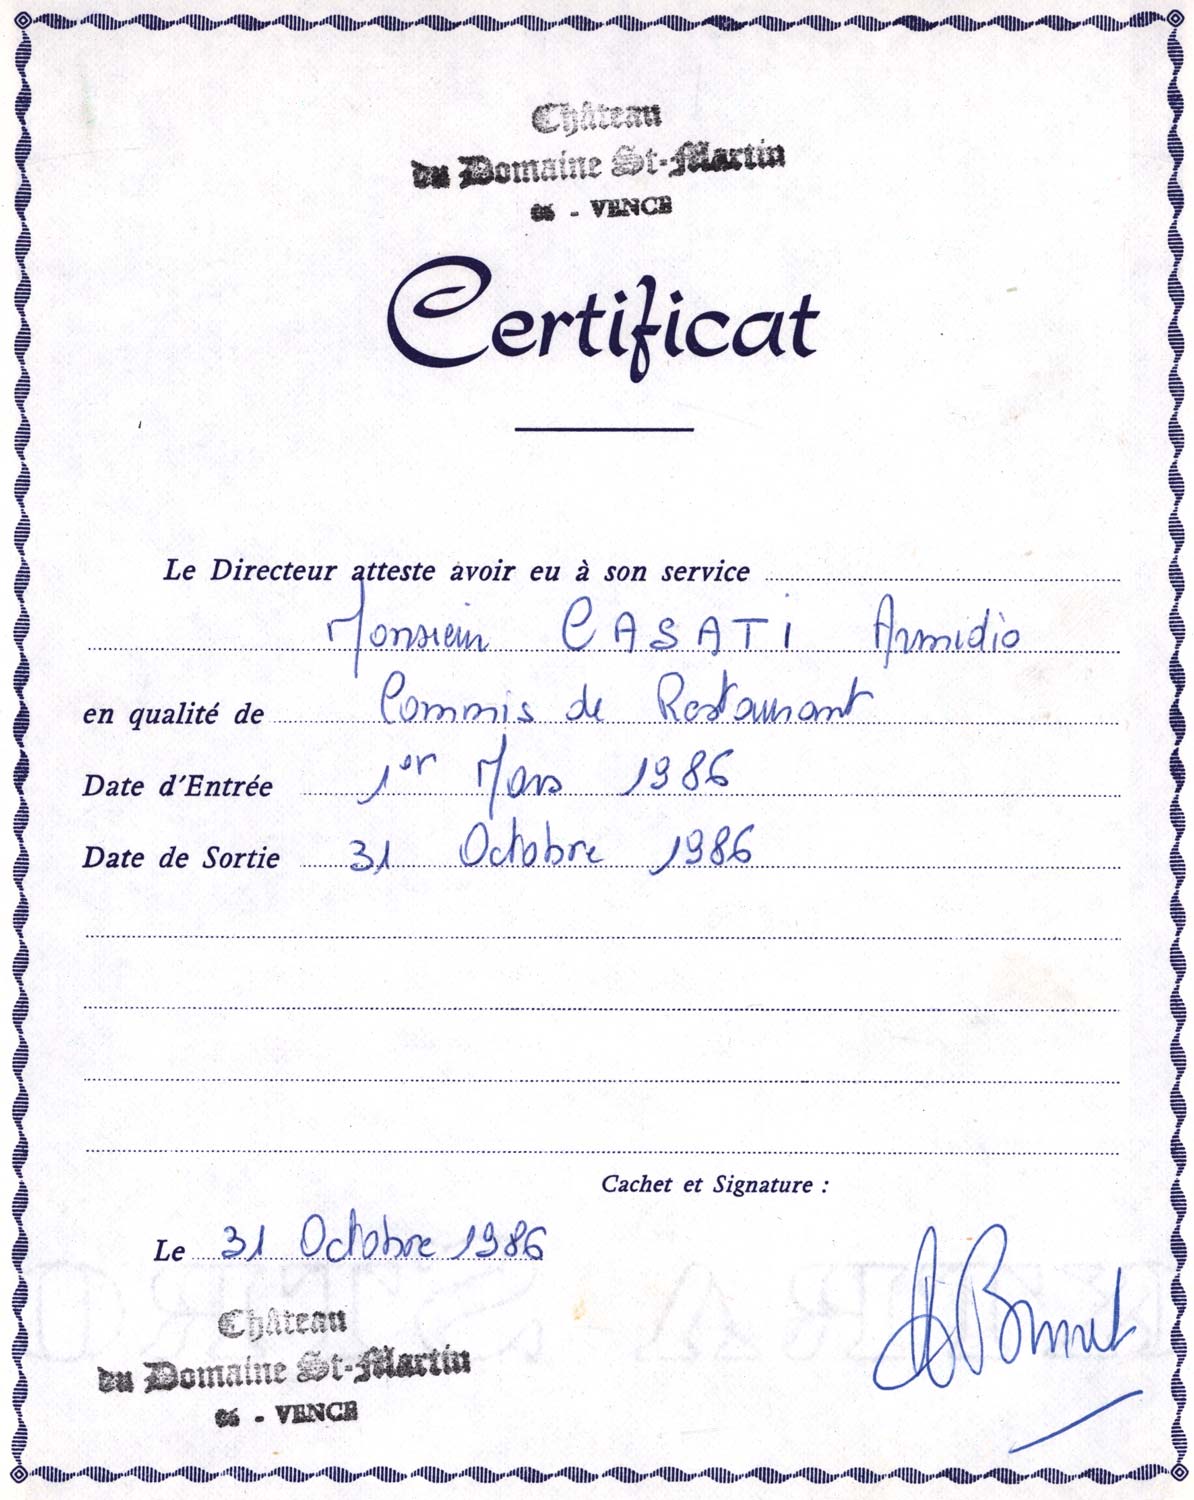 Château
du Domaine St-Martin
06 - VENCE
Certificat
Le Directeur atteste avoir eu à son service
Monsieur CASATI Armidio
en qualité de Commis de Restaurant
Date d'Entrée 1er Mars 1986
Date de Sortie 31 Octobre 1986
Cachet et Signature :
Le 31 Octobre 1986
Château
du Domaine St-Martin
06 - VENCE